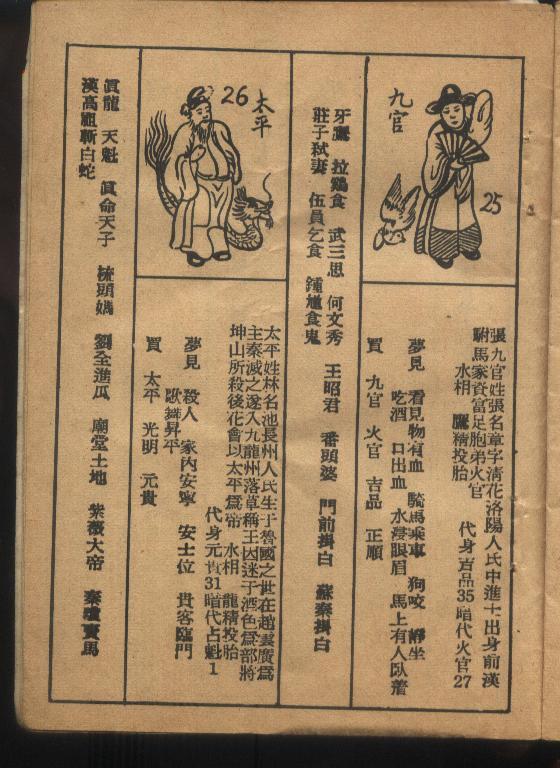 九官
25
張九官姓張名章字清花洛陽人氏中進士出身前漢
駙馬家資富足胞弟火官 代身吉品35暗代火官27
水相 鷹精投胎
夢見 看見物有血 騎馬乘車 狗咬 靜坐
吃酒 口出血 水浸眼眉 馬上有人臥着
買 九官 火官 吉品 正順
牙鷹 拉鷄食 武三思 何文秀 王昭君 番頭婆 門前掛白 蘇秦掛白
莊子弒妻 伍員乞食 鍾馗食鬼
26
太平
太平姓林名池長州人氏生于魯國之世在趙雲廣爲
主秦滅之遂入九龍州落草稱王因迷于酒色爲部將
坤山所殺後花會以太平爲帝 水相 龍精投胎
代身元貴31暗代占魁1
夢見 殺人 家內安寧 安士位 貴客臨門
歌舞昇平
買 太平 光明 元貴
眞龍 天魁 眞命天子 梳頭媽 劉全進瓜 廟堂土地 紫薇大帝 秦瓊賣馬
漢高祖斬白蛇